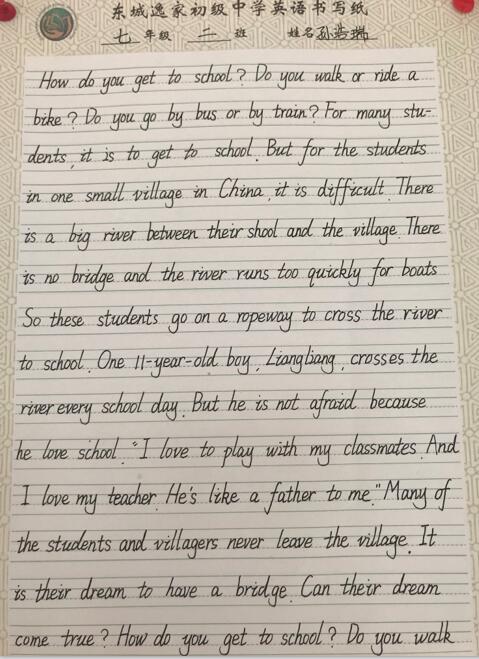 东城逸家初级中学英语书写纸
七 年级 二 班 姓名 孙浩瑞
How do you get to school? Do you walk or ride a
bike? Do you go by bus or by train? For many stu-
dents, it is to get to school. But for the students
in one small village in China, it is difficult. There
is a big river between their shool and the village. There
is no bridge and the river runs too quickly for boats
So these students go on a ropeway to cross the river
to school. One 11-year-old boy, Liangliang, crosses the
river every school day. But he is not afraid because
he love school. "I love to play with my classmates. And
I love my teacher. He's like a father to me." Many of
the students and villagers never leave the village. It
is their dream to have a bridge. Can their dream
come true? How do you get to school? Do you walk